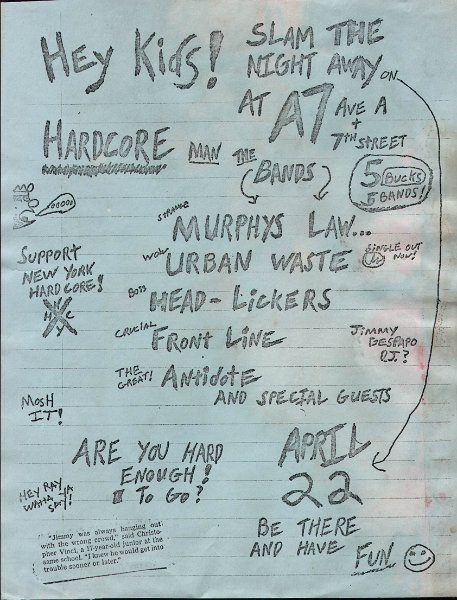 Hey Kids!
SLAM THE
NIGHT AWAY ON
AT A7 AVE A
+
7TH STREET
HARDCORE MAN THE BANDS
5 BUCKS
5 BANDS!
STRANGE MURPHYS LAW...
WOW URBAN WASTE SINGLE OUT
NOW!
BOSS HEAD-LICKERS
CRUCIAL FRONT LINE
THE GREAT! ANTIDOTE
AND SPECIAL GUESTS
SUPPORT
NEW YORK
HARDCORE!
N Y
H C
JIMMY
GESTAPO
D.J.?
MOSH
IT!
ARE YOU HARD
ENOUGH!
TO GO?
APRIL
22
BE THERE
AND HAVE FUN
HEY RAY
WAHA YA
SAY!
"Jimmy was always hanging out
with the wrong crowd," said Christo-
pher Vinci, a 17-year-old junior at the
same school. "I knew he would get into
trouble sooner or later."